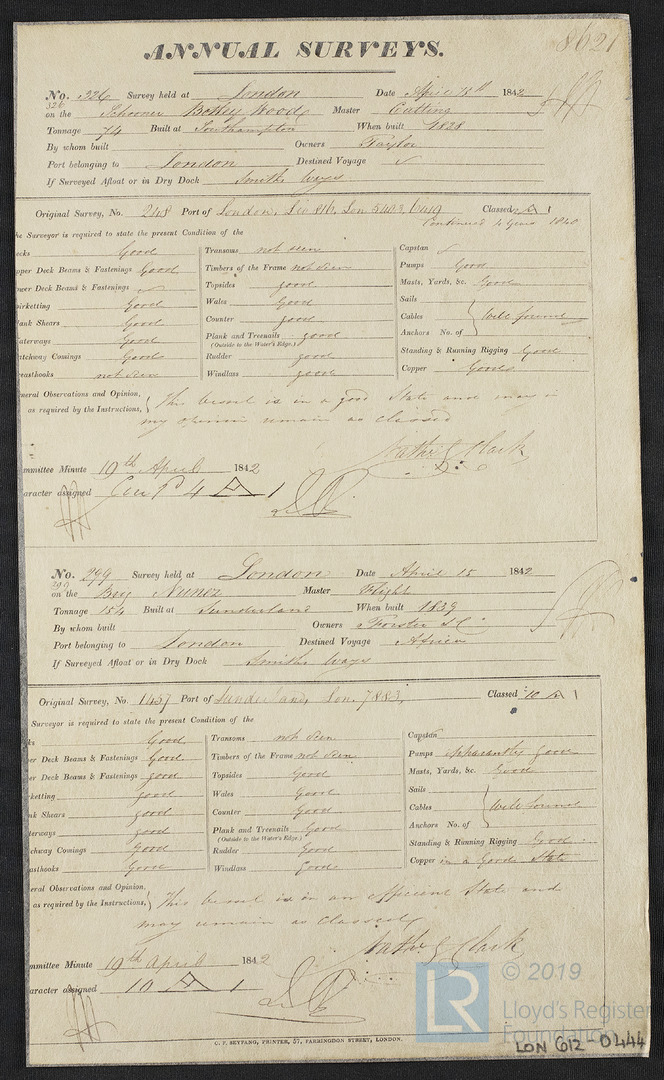 8621
ANNUAL SURVEYS.
No. 326 Survey held at London Date April 15th 1842
326
on the Schooner Betsey Wood Master Cutting
Tonnage 74 Built at Southampton When built 1828
By whom built Owners Taylor
Port belonging to London Destined Voyage
If Surveyed Afloat or in Dry Dock Smiths Ways
Original Survey, No. 248 Port of London, Liv 816, Lon 5403, 6419 Classed A 1
Continued 4 Years 1840
he Surveyor is required to state the present Condition of the
ecks Good Transoms not seen Capstan
pper Deck Beams & Fastenings Good Timbers of the Frame not seen Pumps Good
wer Deck Beams & Fastenings Topsides good Masts, Yards, &c. Good
pirketting Good Wales Good Sails
lank Shears Good Counter good Cables Well found
aterways Good Plank and Treenails good Anchors No. of
(Outside to the Water's Edge.)
atchway Comings Good Rudder good Standing & Running Rigging Good
reasthooks not seen Windlass good Copper Good
neral Observations and Opinion, This vessel is in a good State and may in
as required by the Instructions, my opinion remain as classed
Nathl G Clark
mmittee Minute 19th April 1842
aracter assigned 4 A 1
No. 299 Survey held at London Date April 15 1842
299
on the Brig Nunez Master Flight
Tonnage 154 Built at Sunderland When built 1839
By whom built Owners Forster & Co
Port belonging to London Destined Voyage Africa
If Surveyed Afloat or in Dry Dock Smiths Ways
Original Survey, No. 1457 Port of Sunderland, Lon. 7883, Classed 10 A 1
Surveyor is required to state the present Condition of the
ks Good Transoms not seen Capstan
er Deck Beams & Fastenings Good Timbers of the Frame not seen Pumps apparently good
er Deck Beams & Fastenings good Topsides Good Masts, Yards, &c. Good
ketting good Wales Good Sails
nk Shears Good Counter Good Cables Well found
terways good Plank and Treenails Good Anchors No. of
(Outside to the Water's Edge.)
chway Comings Good Rudder Good Standing & Running Rigging Good
asthooks Good Windlass Good Copper in a Good State
eral Observations and Opinion, This vessel is in an efficient State and
as required by the Instructions, may remain as classed
Nathl G Clark
mmittee Minute 19th April 1842
aracter assigned 10 A 1
C. F. SEYFANG, PRINTER, 57, FARRINGDON STREET, LONDON.
LR © 2019
Lloyd's Register
Foundation
LON 612-0444